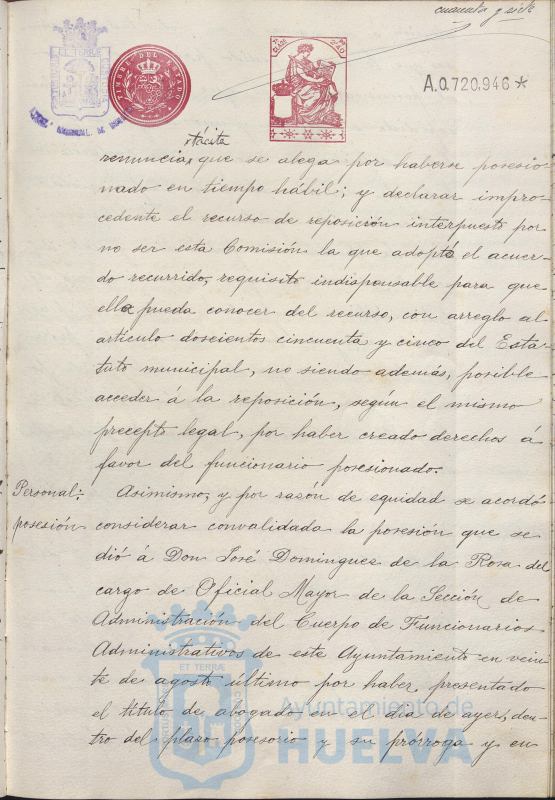 cuarenta y siete
ET TERRÆ
TIMBRE DEL ESTADO
A.0.720.946 *
tácita
renuncia, que se alega por haberse posesio-
nado en tiempo hábil; y declarar impro-
cedente el recurso de reposición interpuesto por
no ser esta Comisión la que adoptó el acuer-
do recurrido, requisito indispensable para que
ella pueda conocer del recurso, con arreglo al
artículo doscientos cincuenta y cinco del Esta-
tuto municipal, no siendo además, posible
acceder á la reposición, según el mismo
precepto legal, por haber creado derechos á
favor del funcionario posesionado.
Personal:
posesión
Asimismo, y por razón de equidad se acordó
considerar convalidada la posesión que se
dió á Don José Dominguez de la Rosa del
cargo de Oficial Mayor de la Sección de
Administración del Cuerpo de Funcionarios
Administrativos de este Ayuntamiento en vein-
te de agosto último por haber presentado
el título de abogado, en el día de ayer, den-
tro del plazo posesorio y su prórroga y en
ET TERRÆ
Ayuntamiento de
HUELVA